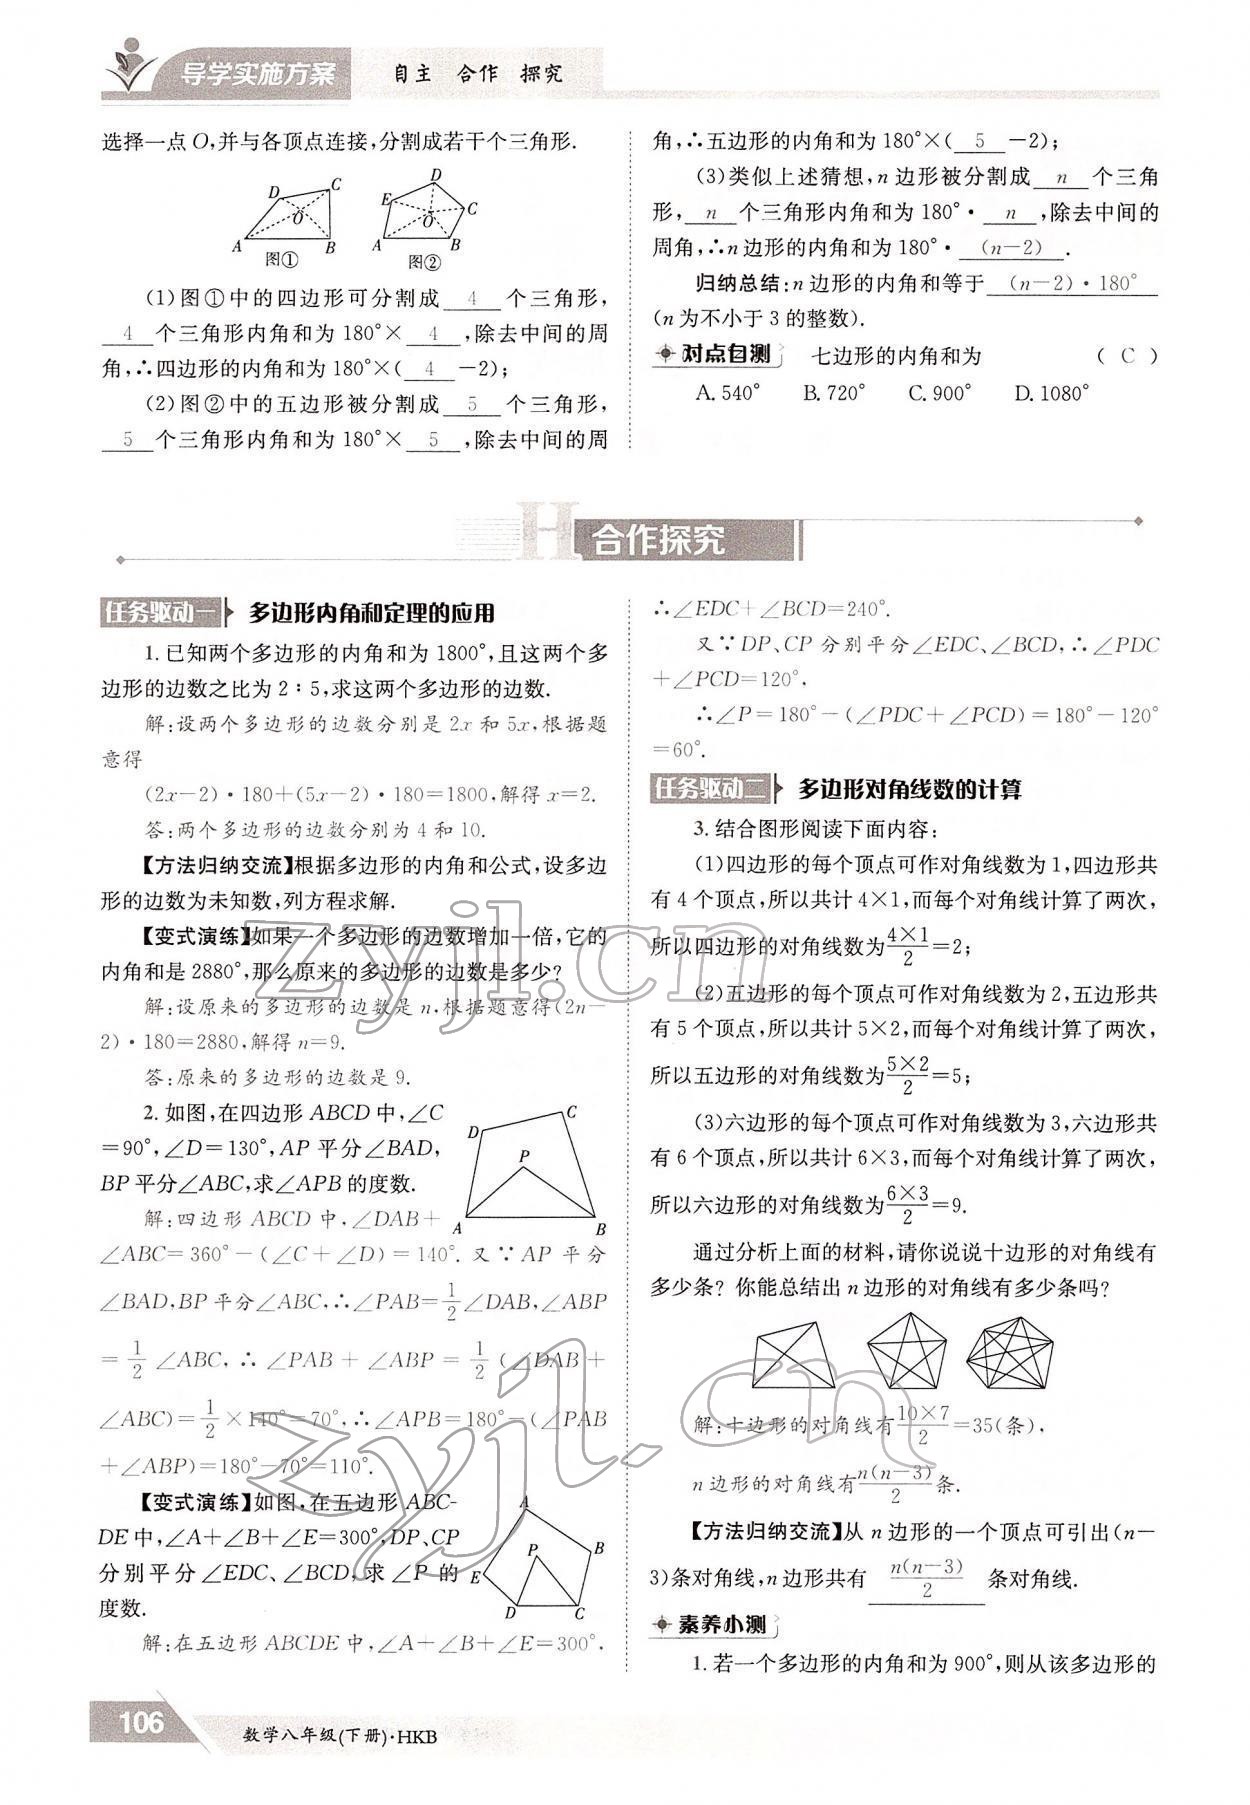 导学实施方案 自主 合作 探究
选择一点O,并与各顶点连接,分割成若干个三角形.
D C O A B
图①
D E C O A B
图②
(1)图①中的四边形可分割成 4 个三角形,
4 个三角形内角和为180°× 4 ,除去中间的周
角,∴四边形的内角和为180°×( 4 -2);
(2)图②中的五边形被分割成 5 个三角形,
5 个三角形内角和为180°× 5 ,除去中间的周
角,∴五边形的内角和为180°×( 5 -2);
(3)类似上述猜想,n边形被分割成 n 个三角
形, n 个三角形内角和为180°· n ,除去中间的
周角,∴n边形的内角和为180°· (n-2) .
归纳总结:n边形的内角和等于 (n-2)·180°
(n为不小于3的整数).
对点自测 七边形的内角和为 ( C )
A.540° B.720° C.900° D.1080°
H 合作探究
任务驱动一 多边形内角和定理的应用
1.已知两个多边形的内角和为1800°,且这两个多
边形的边数之比为2∶5,求这两个多边形的边数.
解:设两个多边形的边数分别是2x和5x,根据题
意得
(2x-2)·180+(5x-2)·180=1800,解得x=2.
答:两个多边形的边数分别为4和10.
【方法归纳交流】根据多边形的内角和公式,设多边
形的边数为未知数,列方程求解.
【变式演练】如果一个多边形的边数增加一倍,它的
内角和是2880°,那么原来的多边形的边数是多少?
解:设原来的多边形的边数是n,根据题意得(2n-
2)·180=2880,解得n=9.
答:原来的多边形的边数是9.
2.如图,在四边形ABCD中,∠C
=90°,∠D=130°,AP平分∠BAD,
BP平分∠ABC,求∠APB的度数.
D C P A B
解:四边形ABCD中,∠DAB+
∠ABC=360°-(∠C+∠D)=140°.又∵AP平分
∠BAD,BP平分∠ABC,∴∠PAB=1/2∠DAB,∠ABP
=1/2∠ABC,∴∠PAB+∠ABP=1/2(∠DAB+
∠ABC)=1/2×140°=70°,∴∠APB=180°-(∠PAB
+∠ABP)=180°-70°=110°.
【变式演练】如图,在五边形ABC-
DE中,∠A+∠B+∠E=300°,DP、CP
分别平分∠EDC、∠BCD,求∠P的
度数.
A B P E D C
解:在五边形ABCDE中,∠A+∠B+∠E=300°.
∴∠EDC+∠BCD=240°.
又∵DP、CP分别平分∠EDC、∠BCD,∴∠PDC
+∠PCD=120°,
∴∠P=180°-(∠PDC+∠PCD)=180°-120°
=60°.
任务驱动二 多边形对角线数的计算
3.结合图形阅读下面内容:
(1)四边形的每个顶点可作对角线数为1,四边形共
有4个顶点,所以共计4×1,而每个对角线计算了两次,
所以四边形的对角线数为4×1/2=2;
(2)五边形的每个顶点可作对角线数为2,五边形共
有5个顶点,所以共计5×2,而每个对角线计算了两次,
所以五边形的对角线数为5×2/2=5;
(3)六边形的每个顶点可作对角线数为3,六边形共
有6个顶点,所以共计6×3,而每个对角线计算了两次,
所以六边形的对角线数为6×3/2=9.
通过分析上面的材料,请你说说十边形的对角线有
多少条?你能总结出n边形的对角线有多少条吗?
解:十边形的对角线有10×7/2=35(条),
n边形的对角线有n(n-3)/2条.
【方法归纳交流】从n边形的一个顶点可引出(n-
3)条对角线,n边形共有 n(n-3)/2 条对角线.
素养小测
1.若一个多边形的内角和为900°,则从该多边形的
106 数学八年级(下册)·HKB
zyjl.cn
zyjl.cn